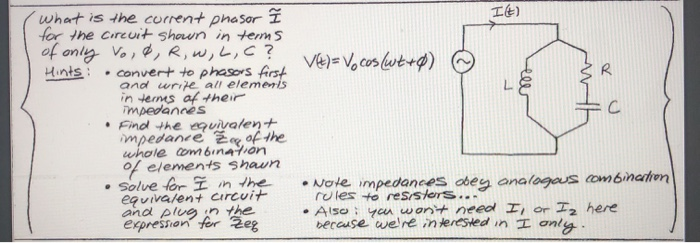 What is the current phasor Ĩ
for the circuit shown in terms
of only V₀, φ, R, ω, L, C ?
Hints: • convert to phasors first
and write all elements
in terms of their
impedances
• Find the equivalent
impedance Z̃eq of the
whole combination
of elements shown
• Solve for Ĩ in the
equivalent circuit
and plug in the
expression for Z̃eq
V(t)=V₀cos(ωt+φ)
I(t)
L
R
C
• Note impedances obey analogous combination
rules to resistors...
• Also: you won't need I₁ or I₂ here
because we're interested in I only.